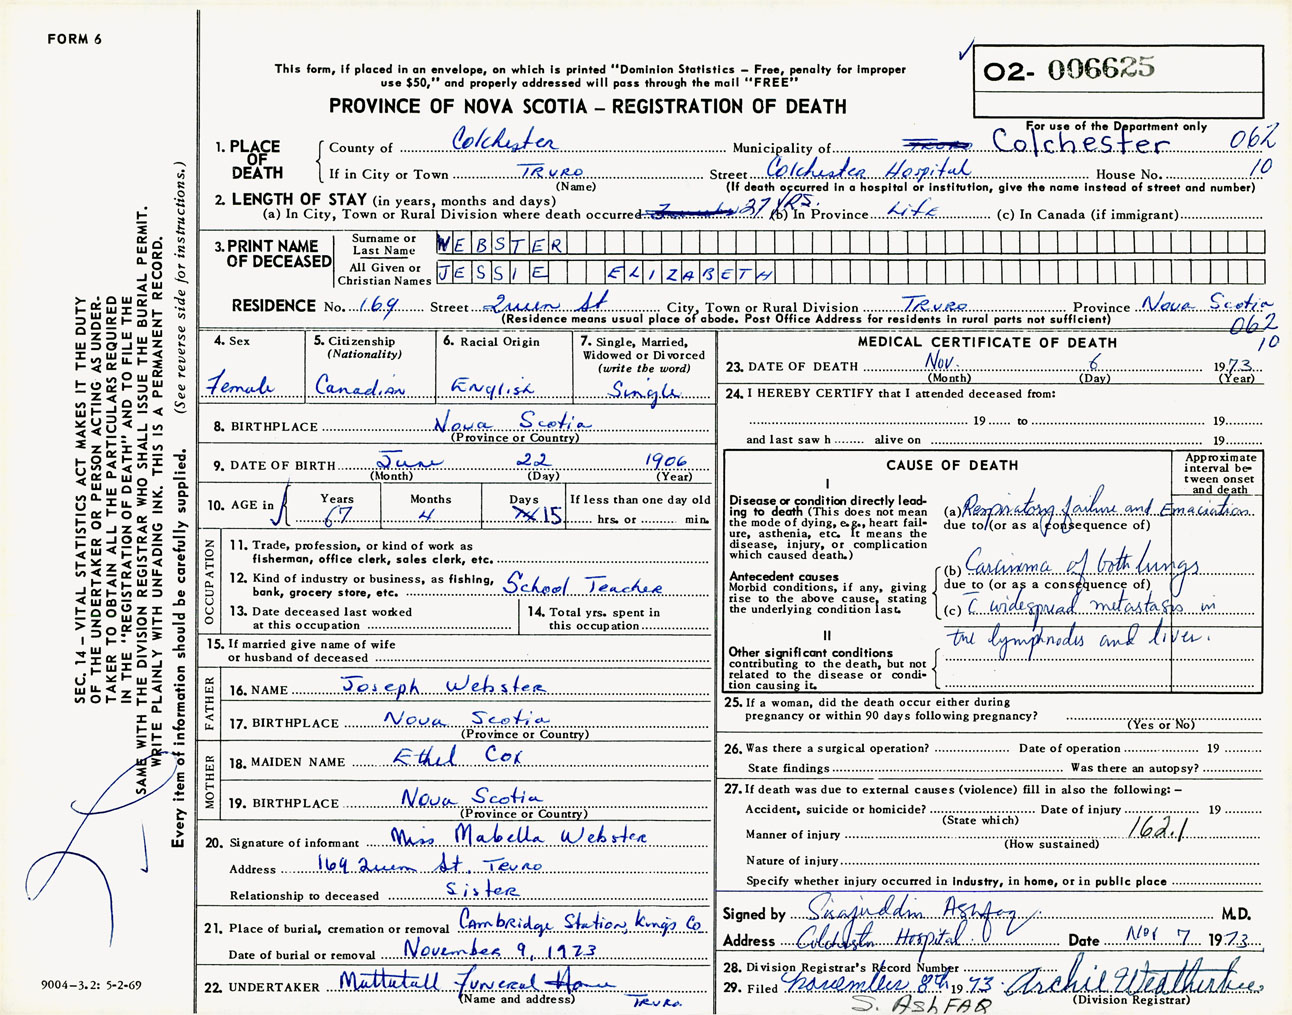 FORM 6
This form, if placed in an envelope, on which is printed "Dominion Statistics – Free, penalty for improper
use $50," and properly addressed will pass through the mail "FREE"
PROVINCE OF NOVA SCOTIA – REGISTRATION OF DEATH
02- 006625
For use of the Department only
1. PLACE OF DEATH County of Colchester Municipality of Colchester 062
If in City or Town Truro Street Colchester Hospital House No. 10
(Name) (If death occurred in a hospital or institution, give the name instead of street and number)
2. LENGTH OF STAY (in years, months and days)
(a) In City, Town or Rural Division where death occurred 27 YRS. (b) In Province Life (c) In Canada (if immigrant)
3. PRINT NAME OF DECEASED
Surname or Last Name WEBSTER
All Given or Christian Names JESSIE ELIZABETH
RESIDENCE No. 169 Street Queen St City, Town or Rural Division Truro Province Nova Scotia
(Residence means usual place of abode. Post Office Address for residents in rural parts not sufficient)
062
10
4. Sex Female
5. Citizenship (Nationality) Canadian
6. Racial Origin English
7. Single, Married, Widowed or Divorced (write the word) Single
8. BIRTHPLACE Nova Scotia
(Province or Country)
9. DATE OF BIRTH June 22 1906
(Month) (Day) (Year)
10. AGE in Years 67 Months 4 Days 15 If less than one day old hrs. or min.
OCCUPATION
11. Trade, profession, or kind of work as
fisherman, office clerk, sales clerk, etc.
12. Kind of industry or business, as fishing,
bank, grocery store, etc. School Teacher
13. Date deceased last worked
at this occupation
14. Total yrs. spent in
this occupation
15. If married give name of wife
or husband of deceased
FATHER
16. NAME Joseph Webster
17. BIRTHPLACE Nova Scotia
(Province or Country)
MOTHER
18. MAIDEN NAME Ethel Cox
19. BIRTHPLACE Nova Scotia
(Province or Country)
20. Signature of informant Miss Mabella Webster
Address 169 Queen St. Truro
Relationship to deceased Sister
21. Place of burial, cremation or removal Cambridge Station, Kings Co
Date of burial or removal November 9, 1973
22. UNDERTAKER Mattatall Funeral Home
(Name and address) Truro.
MEDICAL CERTIFICATE OF DEATH
23. DATE OF DEATH Nov. 6 1973
(Month) (Day) (Year)
24. I HEREBY CERTIFY that I attended deceased from:
19 to 19
and last saw h alive on 19
CAUSE OF DEATH
Approximate interval between onset and death
I
Disease or condition directly leading to death (This does not mean the mode of dying, e.g., heart failure, asthenia, etc. It means the disease, injury, or complication which caused death.)
(a) Respiratory failure and Emaciation
due to (or as a consequence of)
Antecedent causes
Morbid conditions, if any, giving rise to the above cause, stating the underlying condition last.
(b) Carcinoma of both lungs
due to (or as a consequence of)
(c) c̄ widespread metastasis in
the lymphnodes and liver.
II
Other significant conditions
contributing to the death, but not related to the disease or condition causing it.
25. If a woman, did the death occur either during
pregnancy or within 90 days following pregnancy?
(Yes or No)
26. Was there a surgical operation? Date of operation 19
State findings Was there an autopsy?
27. If death was due to external causes (violence) fill in also the following: –
Accident, suicide or homicide? Date of injury 19
(State which)
Manner of injury 162.1
(How sustained)
Nature of injury
Specify whether injury occurred in industry, in home, or in public place
Signed by Sirajuddin Ashfaq M.D.
Address Colchester Hospital. Date Nov 7 1973
28. Division Registrar's Record Number
29. Filed November 8th 1973 Archie Weatherbee
(Division Registrar)
S. ASHFAQ
SEC. 14 – VITAL STATISTICS ACT MAKES IT THE DUTY
OF THE UNDERTAKER OR PERSON ACTING AS UNDER-
TAKER TO OBTAIN ALL THE PARTICULARS REQUIRED
IN THE "REGISTRATION OF DEATH" AND TO FILE THE
SAME WITH THE DIVISION REGISTRAR WHO SHALL ISSUE THE BURIAL PERMIT.
WRITE PLAINLY WITH UNFADING INK. THIS IS A PERMANENT RECORD.
Every item of information should be carefully supplied. (See reverse side for instructions.)
9004-3.2: 5-2-69